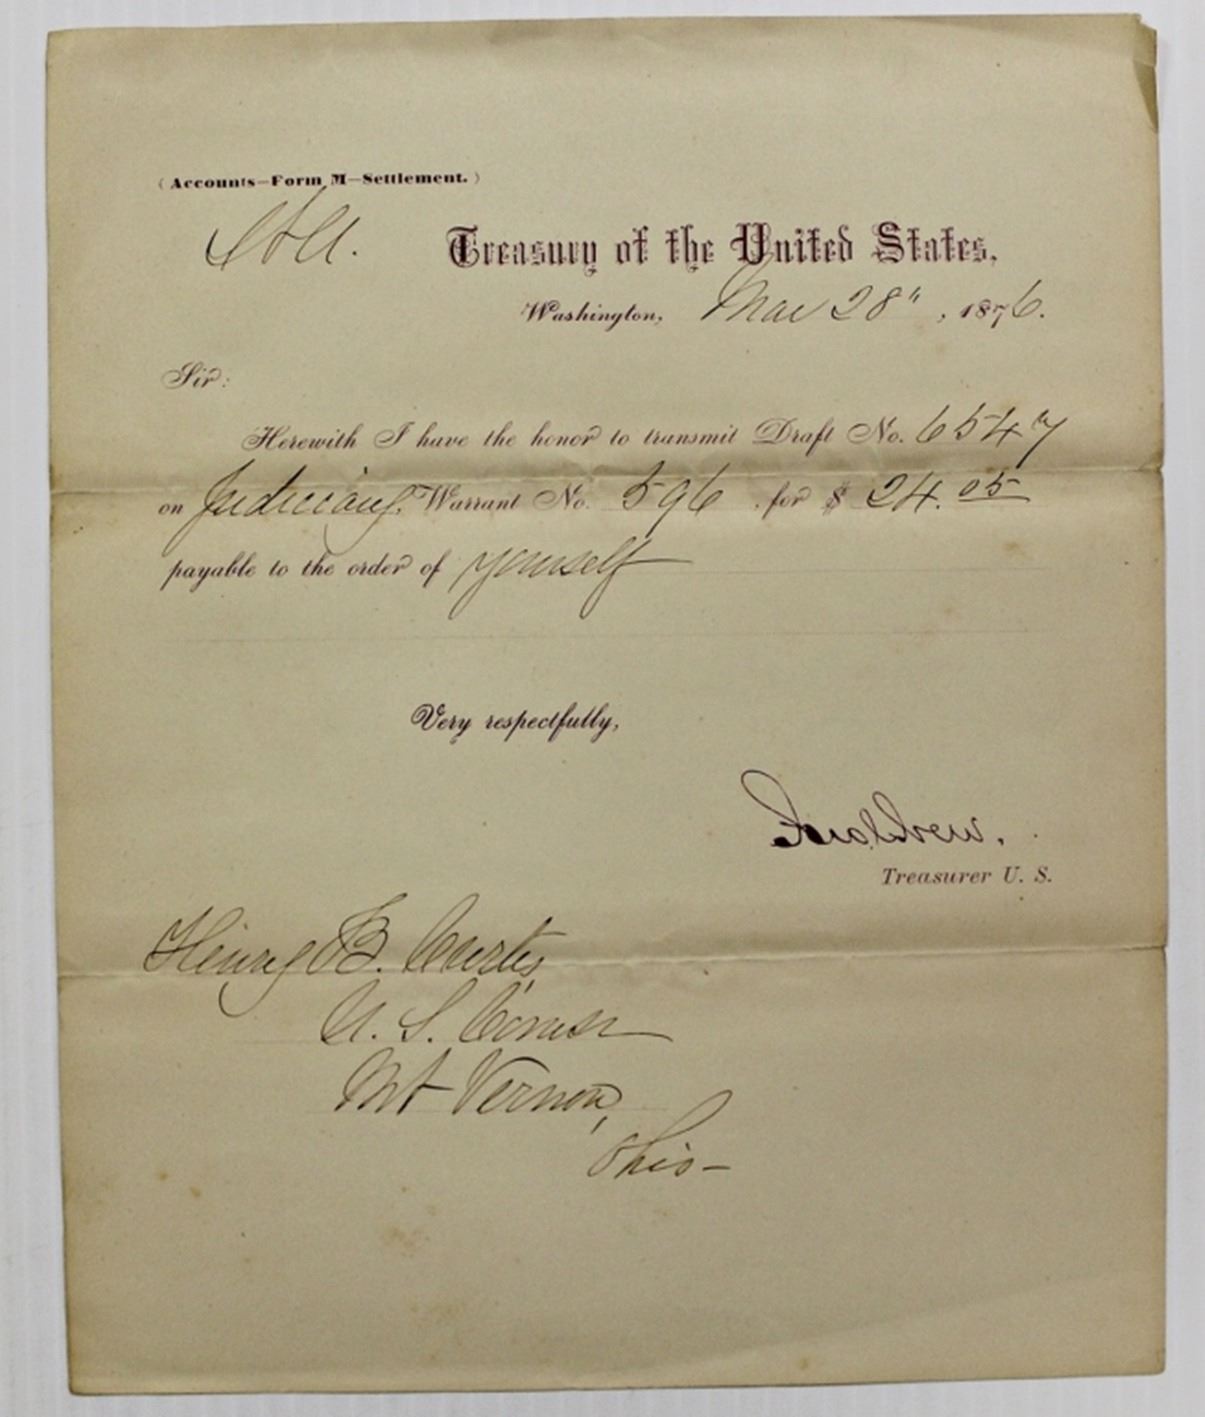 ( Accounts—Form M—Settlement. )
Treasury of the United States,
Washington, Mar 28", 1876.
Sir:
Herewith I have the honor to transmit Draft No. 6547
on Judiciary Warrant No. 596 for $ 24.05
payable to the order of yourself
Very respectfully,
Treasurer U. S.
Henry B. Curtis,
U. S. Comsr
Mt Vernon,
Ohio—